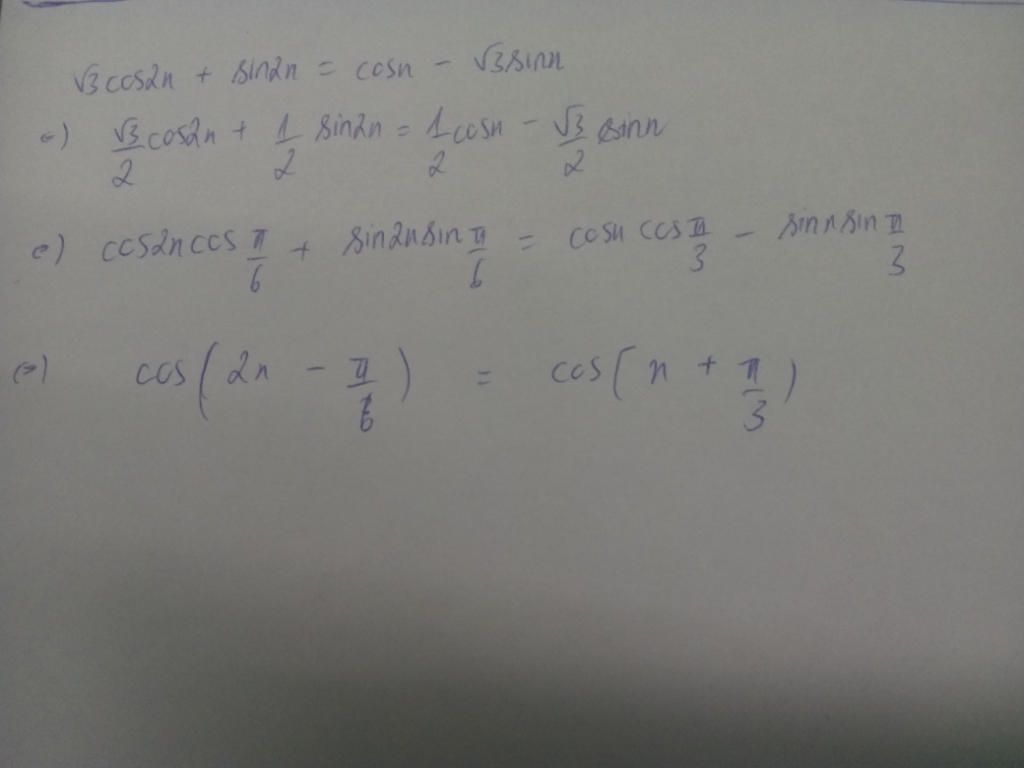 √3cos2x + sin2x = cosx - √3sinx
<=> √3/2 cos2x + 1/2 sin2x = 1/2 cosx - √3/2 sinx
<=> cos2x cos π/6 + sin2x sin π/6 = cosx cos π/3 - sinx sin π/3
<=> cos(2x - π/6) = cos(x + π/3)